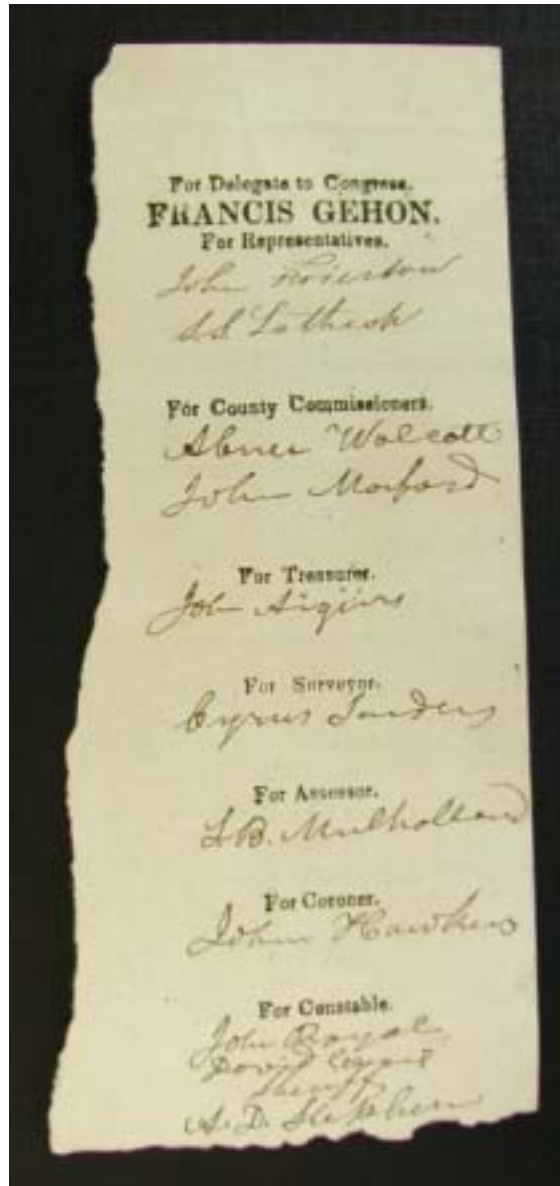 For Delegate to Congress.
FRANCIS GEHON.
For Representatives.
John
S.S. Lathrop
For County Commissioners.
Abner Wolcott
John Morford
For Treasurer.
John
For Surveyor.
Cyrus Sanders
For Assessor.
S.B. Mulholland
For Coroner.
John Hawkins
For Constable.
John Royal
David
Sheriff
A. D. Stephen